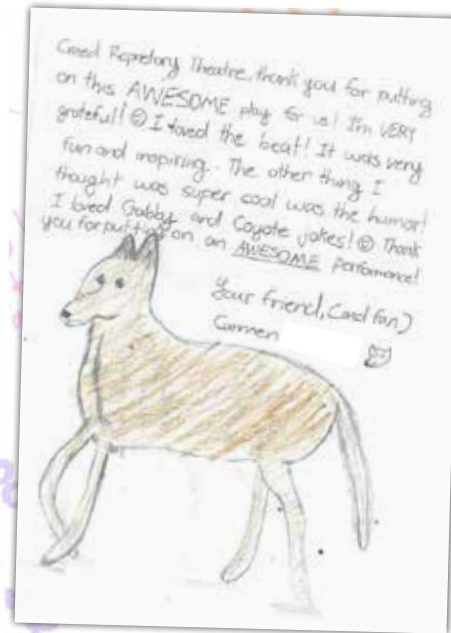 Creed Repretory Theatre, thank you for putting
on this AWESOME play for us! I'm VERY
grateful! ☺ I loved the beat! It was very
fun and inspiring. The other thing I
thought was super cool was the humor!
I loved Gabby and Coyote jokes! ☺ Thank
you for putting on an AWESOME performance!
Your friend, (and fan)
Carmen